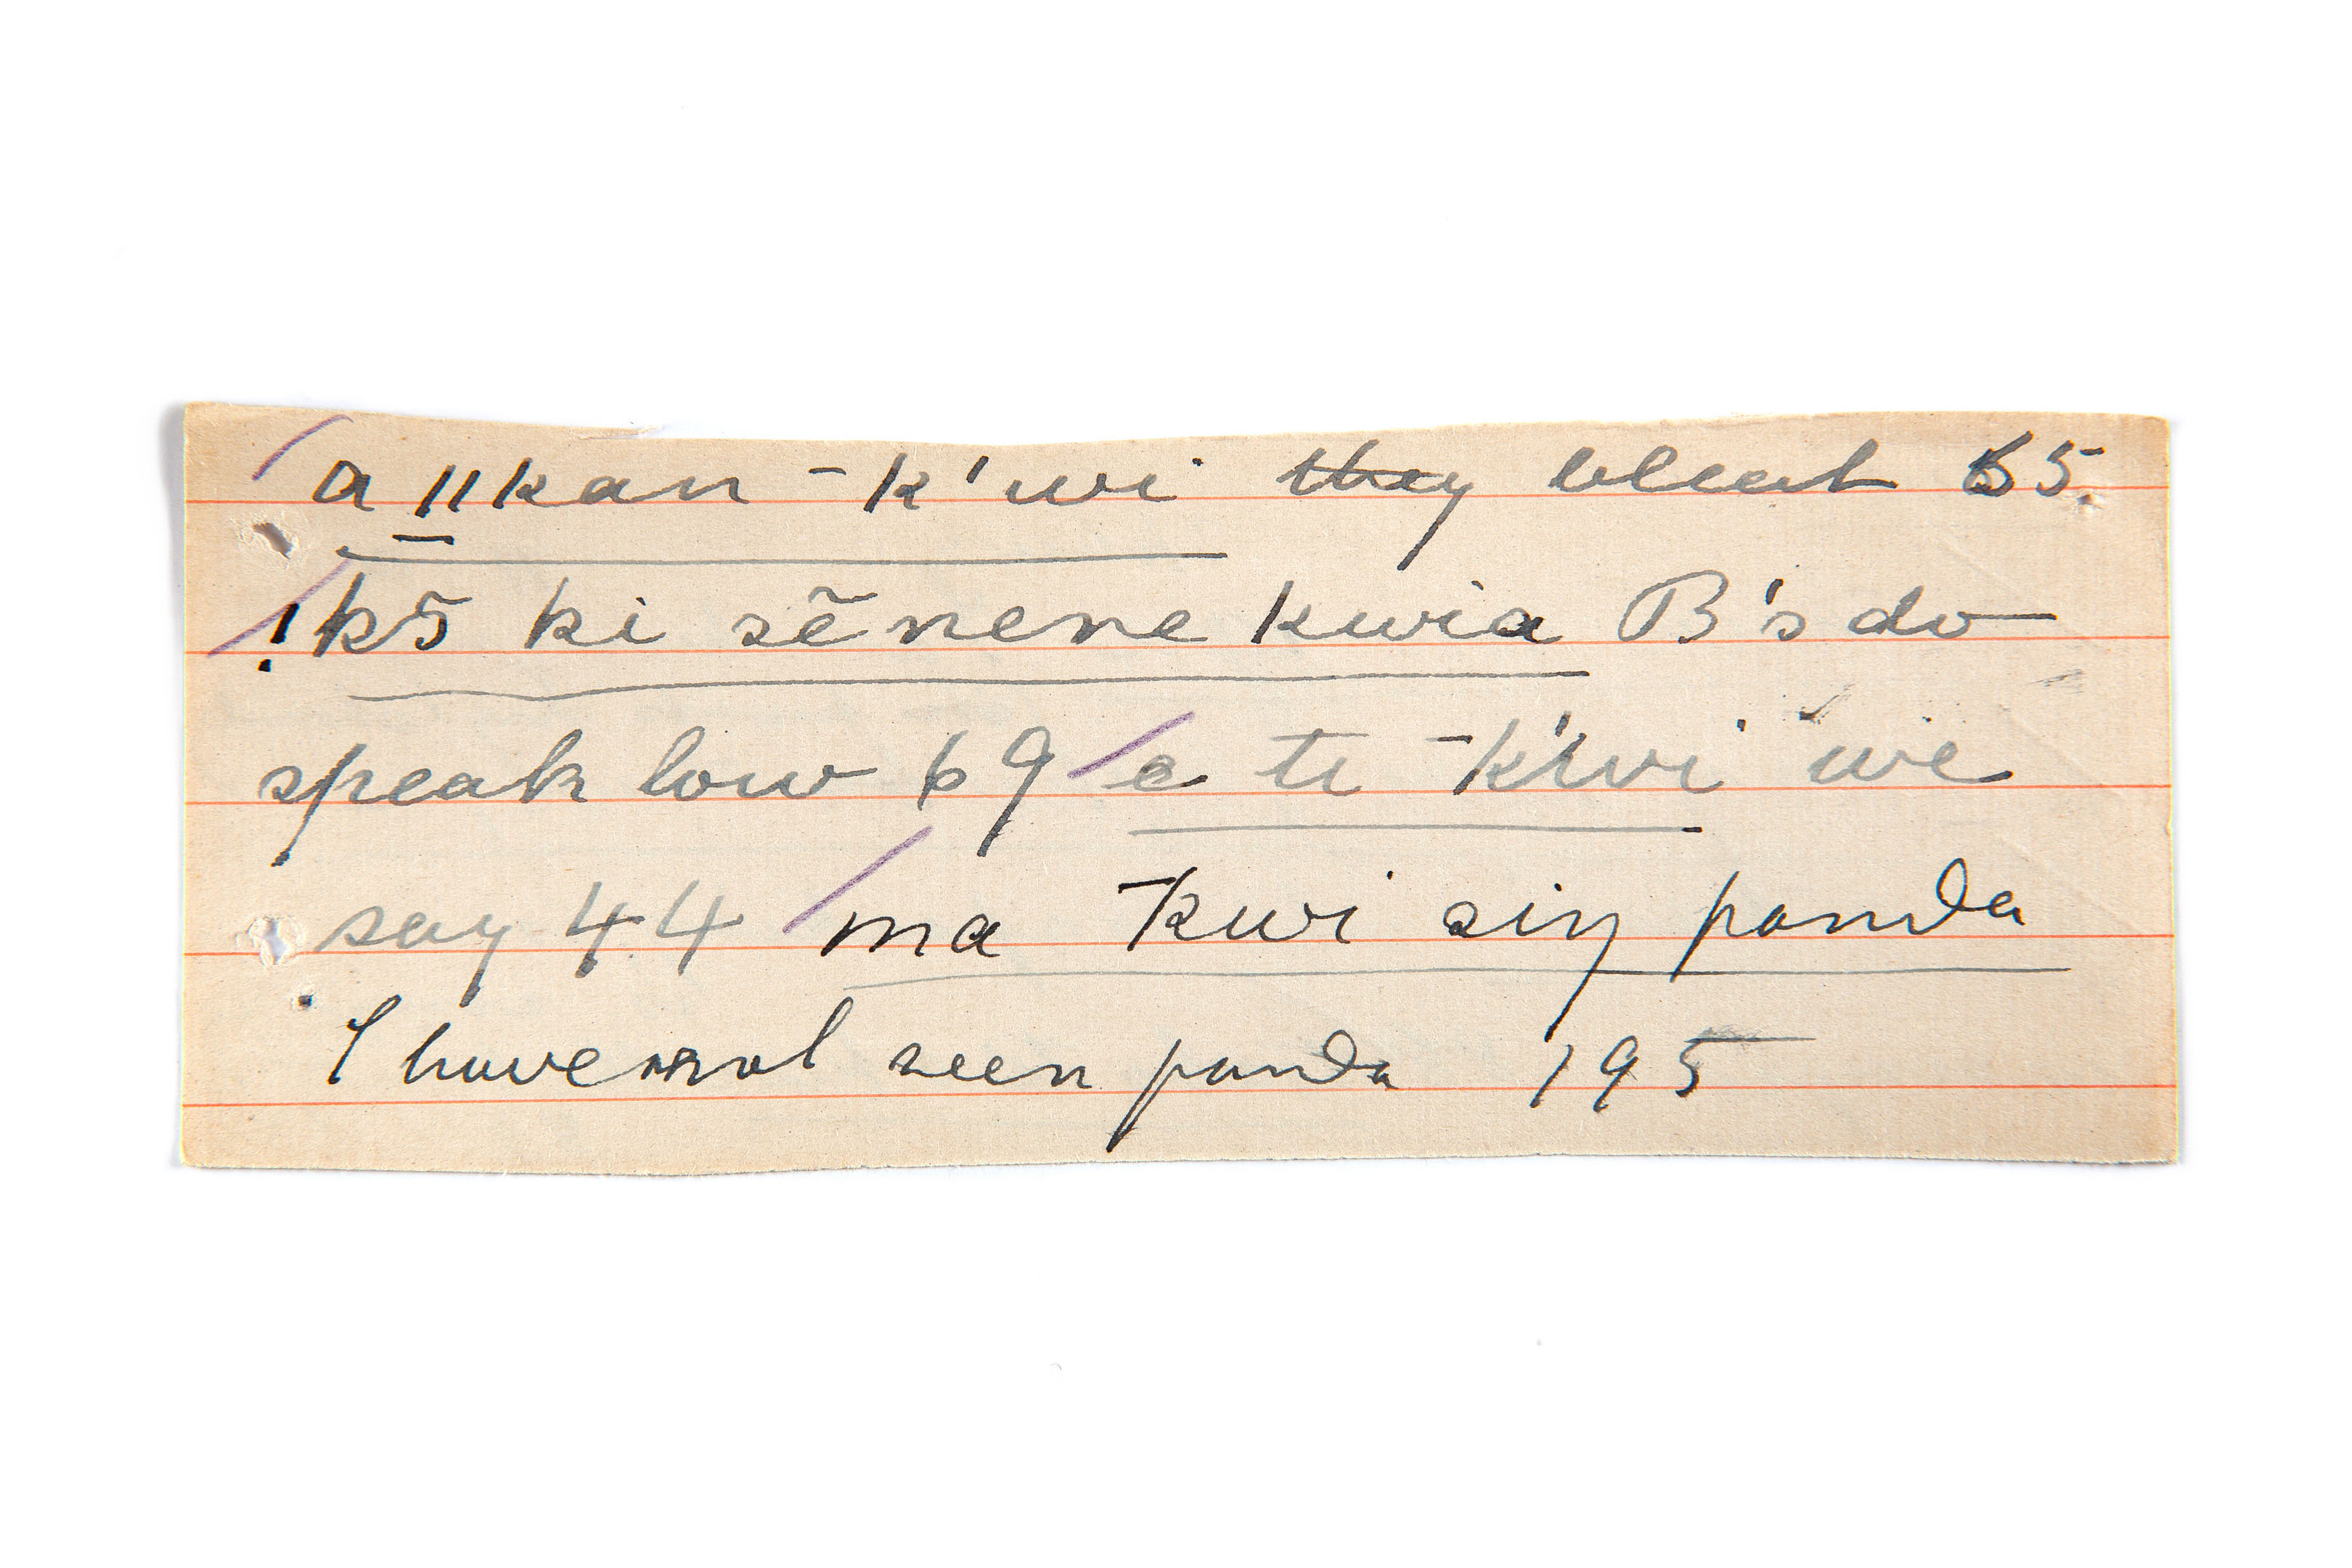 a ǁkan ‾k'wi they bleat 65.
!kõ ki sẽnene kwia B's do
speak low 69 e ti ‾k'wi we
say 44 ma ‾kwi siŋ panda
I have not seen panda 195